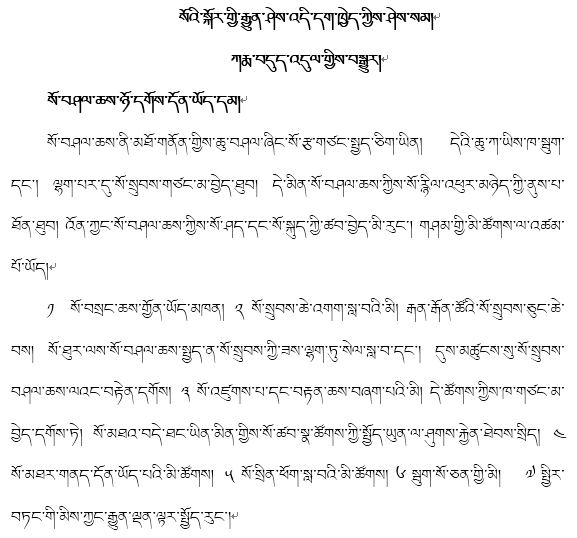 སོའི་སྐོར་གྱི་རྒྱུན་ཤེས་འདི་དག་ཁྱེད་ཀྱིས་ཤེས་སམ།
ཀརྨ་བདུད་འདུལ་གྱིས་བསྒྱུར།
སོ་བཤལ་ཆས་ཉོ་དགོས་དོན་ཡོད་དམ།
སོ་བཤལ་ཆས་ནི་མཐོ་གནོན་གྱིས་ཆུ་བཤལ་ཞིང་སོ་རྩ་གཙང་སྤྱད་ཅིག་ཡིན། དེའི་ཆུ་ཀ་ཡིས་ཁ་སྦུག་
དང་། ལྷག་པར་དུ་སོ་སྲུབས་གཙང་མ་བྱེད་ཐུབ། དེ་མིན་སོ་བཤལ་ཆས་ཀྱིས་སོ་རྙིལ་འཕུར་མཉེད་ཀྱི་ནུས་པ་
ཐོན་ཐུབ། འོན་ཀྱང་སོ་བཤལ་ཆས་ཀྱིས་སོ་ཤད་དང་སོ་སྐུད་ཀྱི་ཚབ་བྱེད་མི་རུང་། གཤམ་གྱི་མི་ཚོགས་ལ་འཚམ་
པོ་ཡོད།
༡ སོ་བསྲང་ཆས་གྱོན་ཡོད་མཁན། ༢ སོ་སྲུབས་ཆེ་འགག་སླ་བའི་མི། རྒན་རྒོན་ཚོའི་སོ་སྲུབས་ཅུང་ཆེ་
བས། སོ་ཐུར་ལས་སོ་བཤལ་ཆས་སྤྱད་ན་སོ་སྲུབས་ཀྱི་ཟས་ལྷག་ཏུ་སེལ་སླ་བ་དང་། དུས་མཚུངས་སུ་སོ་སྲུབས་
བཤལ་ཆས་ལའང་བརྟེན་དགོས། ༣ སོ་འཛུགས་པ་དང་བརྟན་ཆས་བཞག་པའི་མི། དེ་ཚོགས་ཀྱིས་ཁ་གཙང་མ་
བྱེད་དགོས་ཏེ། སོ་མཐའ་བདེ་ཐང་ཡིན་མིན་གྱིས་སོ་ཚབ་སྣ་ཚོགས་ཀྱི་སྤྱོད་ཡུན་ལ་ཤུགས་རྐྱེན་ཐེབས་སྲིད། ༤
སོ་མཐར་གནད་དོན་ཡོད་པའི་མི་ཚོགས། ༥ སོ་སྲིན་ཕོག་སླ་བའི་མི་ཚོགས། ༦ སྦུག་སོ་ཅན་གྱི་མི། ༧ སྤྱིར་
བཏང་གི་མིས་ཀྱང་རྒྱུན་ལྡན་ལྟར་སྤྱོད་རུང་།